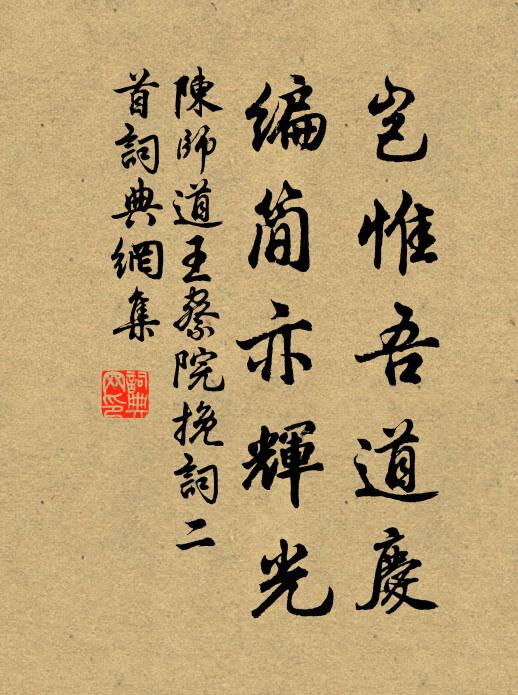 豈惟吾道慶
編簡亦輝光
陳師道王察院挽詞二
首詞典網集
詞典網印